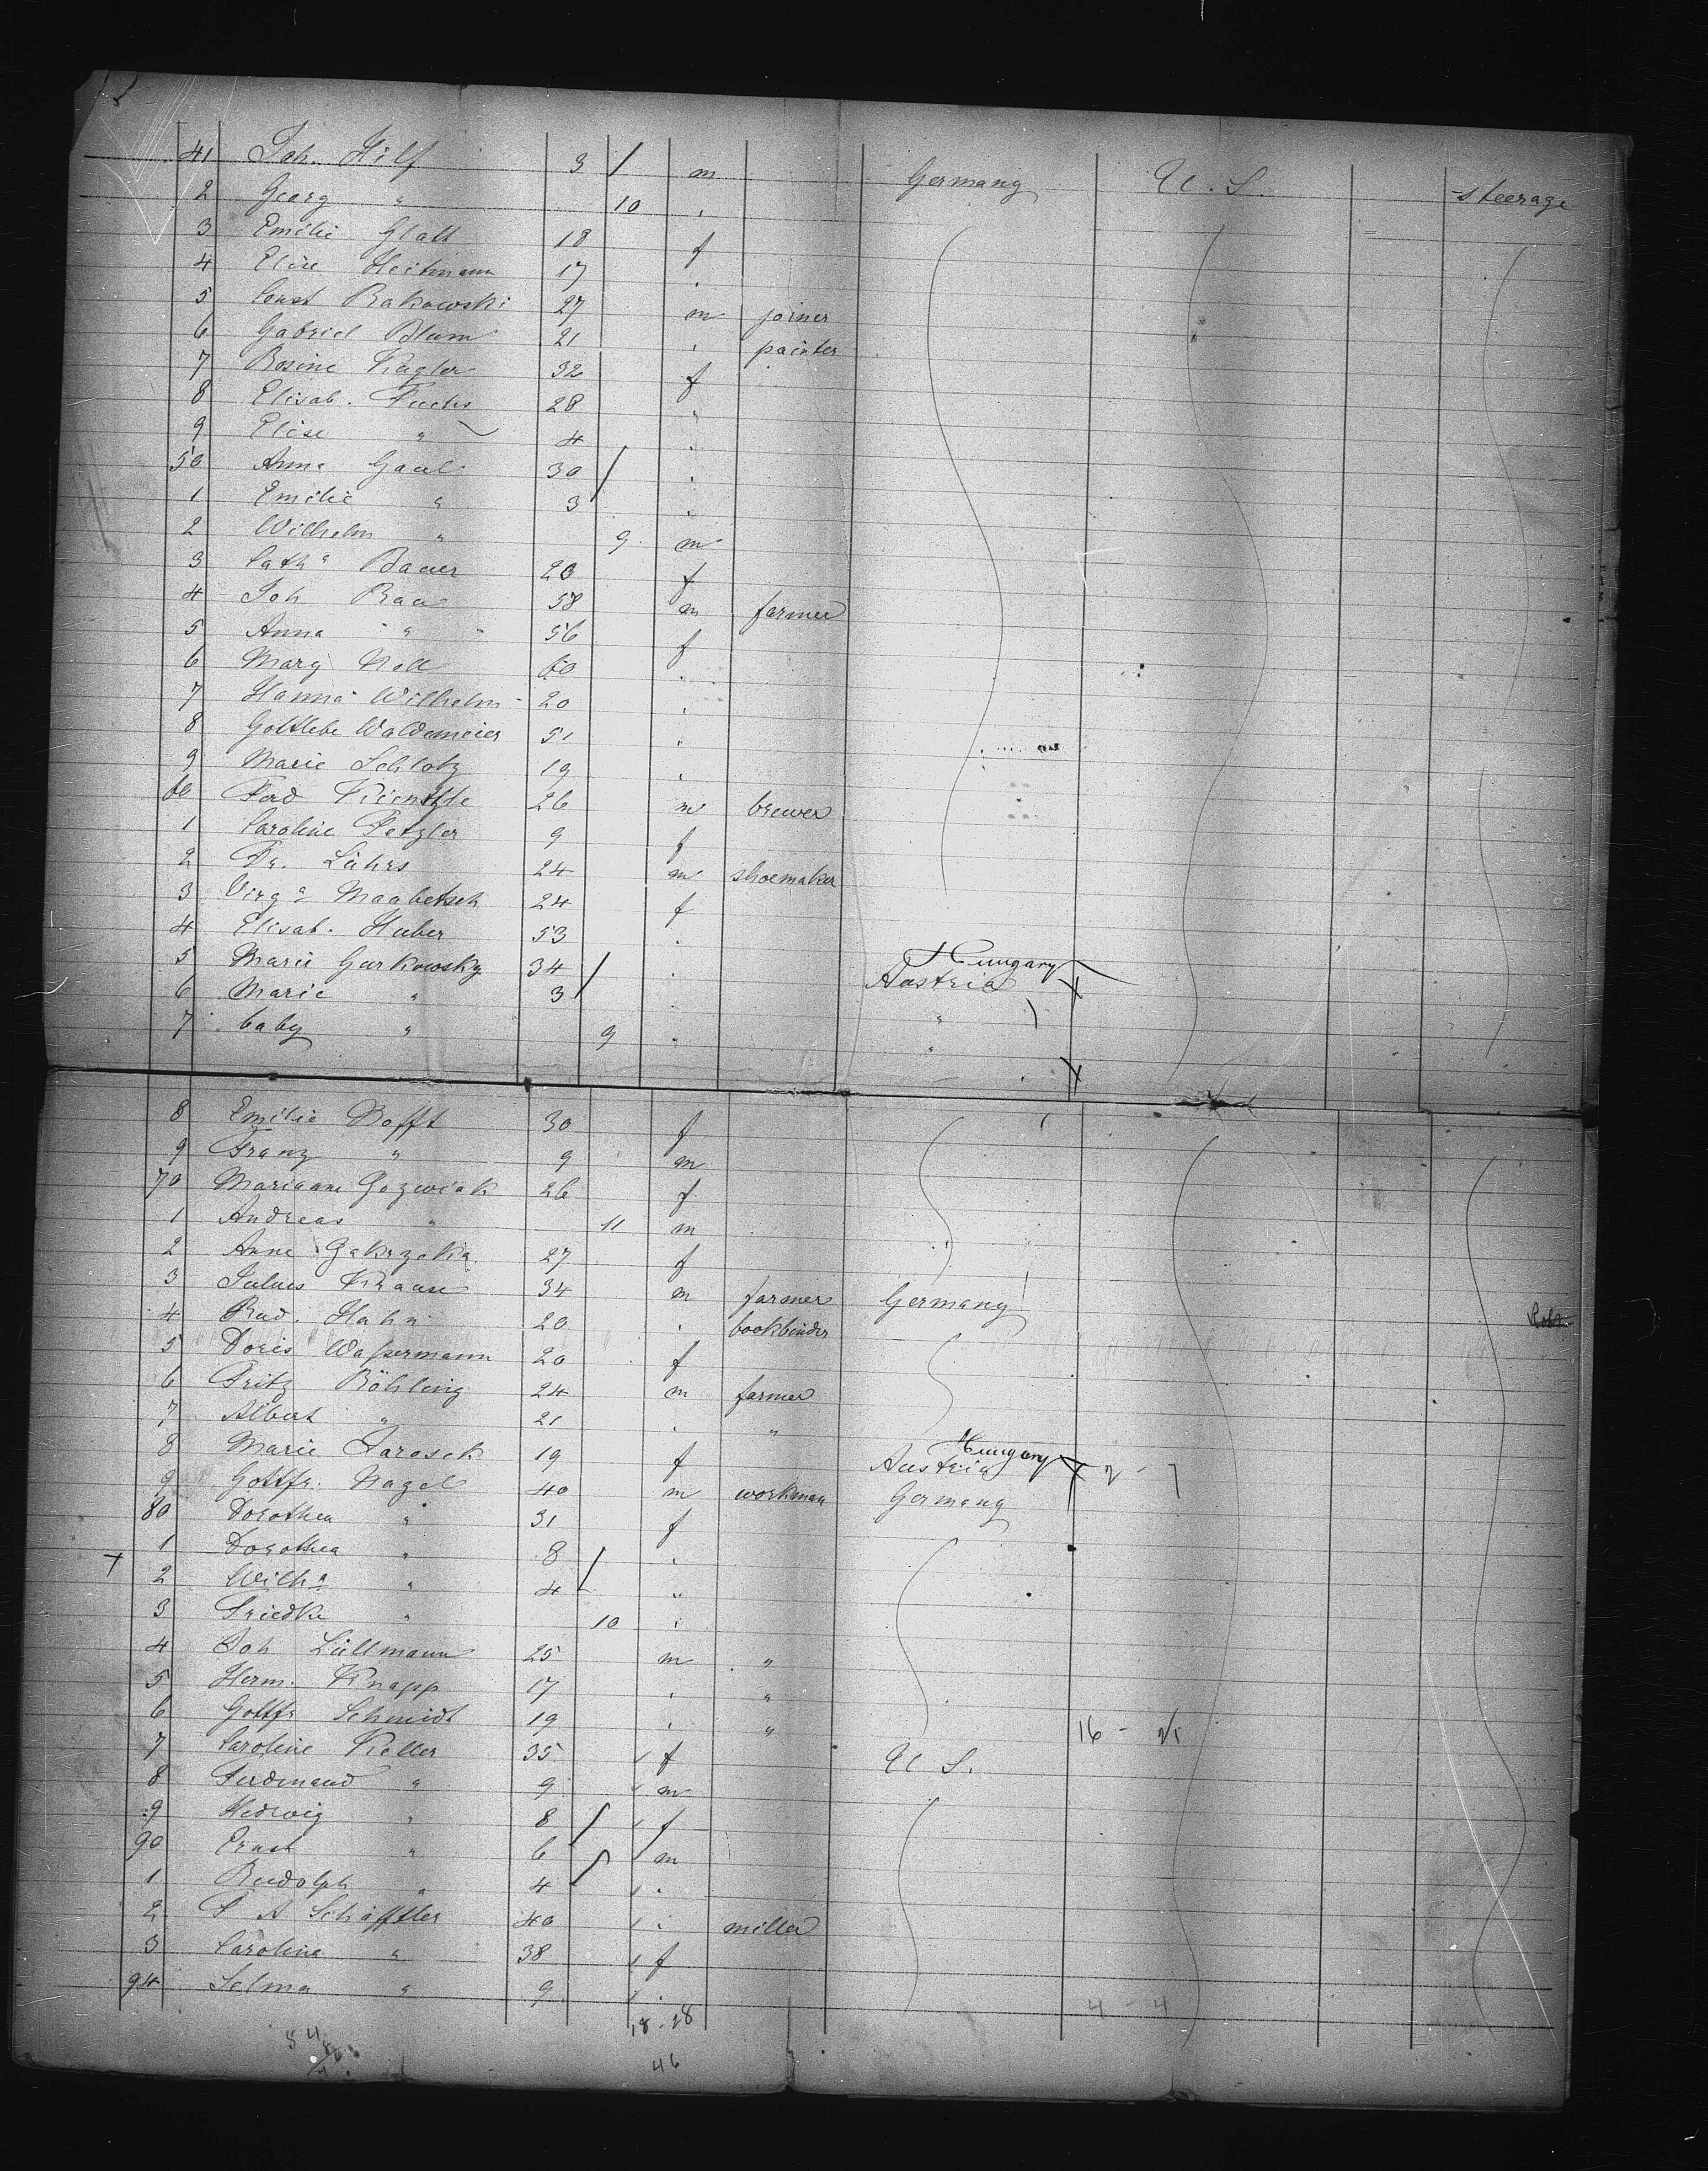 41 Joh. Hilf 3 / m Germany U. S. steerage
2 Georg " 10 "
3 Emilie Glatt 18 f
4 Elise Heitmann 17 "
5 Const Rakowski 27 m joiner
6 Gabriel Blum 21 " painter
7 Rosine Kugler 32 f
8 Elisab. Fuchs 28 "
9 Elise " 4 "
50 Anna Gaul 30 / "
1 Emilie " 3 "
2 Wilhelm " 9 m
3 Cath a Bauer 20 f
4 Joh Rau 58 m farmer
5 Anna " 56 f
6 Marg Noll 60 "
7 Hanna Wilhelm 20 "
8 Gottlebe Waldemeier 51 "
9 Marie Schlotz 19 "
60 Ferd Kienzle 26 m brewer
1 Caroline Petzler 9 f
2 Fr. Lührs 24 m shoemaker
3 Virg a Maabetsch 24 f
4 Elisab. Huber 53 "
5 Marie Gurkowsky 34 / " Hungary Austria X
6 Marie " 3 " "
7 baby " 9 " " X
8 Emilie Nofft 30 f
9 Franz " 9 m
70 Marianne Gozwiak 26 f
1 Andreas " 11 m
2 Anna Gakrzeka 27 f
3 Julius Krause 34 m farmer Germany
4 Rud. Hahn 20 " bookbinder
5 Doris Waßermann 20 f
6 Fritz Böhling 24 m farmer
7 Albert " 21 " "
8 Marie Jaroseh 19 f Hungary Austria X
9 Gottfr. Nagel 40 m workman Germany
80 Dorothea " 31 f
1 Dorothea " 8 / "
X 2 Wilh a " 4 "
3 Friedke " 10 "
4 Joh Lüllmann 25 m "
5 Herm. Knapp 17 " "
6 Gottfr Schmidt 19 " "
16 -
7 Caroline Keller 35 f U S.
8 Ferdinand " 9 m
9 Hedwig " 8 f
90 Ernst " 6 m
1 Rudolph " 4 "
2 F A Schäffler 40 " miller
3 Caroline " 38 f
94 Selma " 9 "
4 - 4
18 - 28
54
46